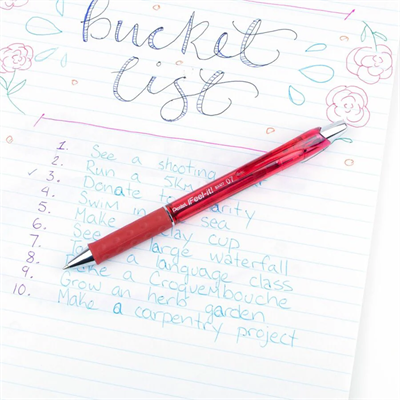 bucket
list
1. See a shooting
2. Run a 5km
✓ 3. Donate
4. Swim in sea
5. Make cup
6. See large waterfall
7. a language class
8. a Croquembouche
9. Grow an herb garden
10. Make a carpentry project
Pentel iFeel-it! 0.7